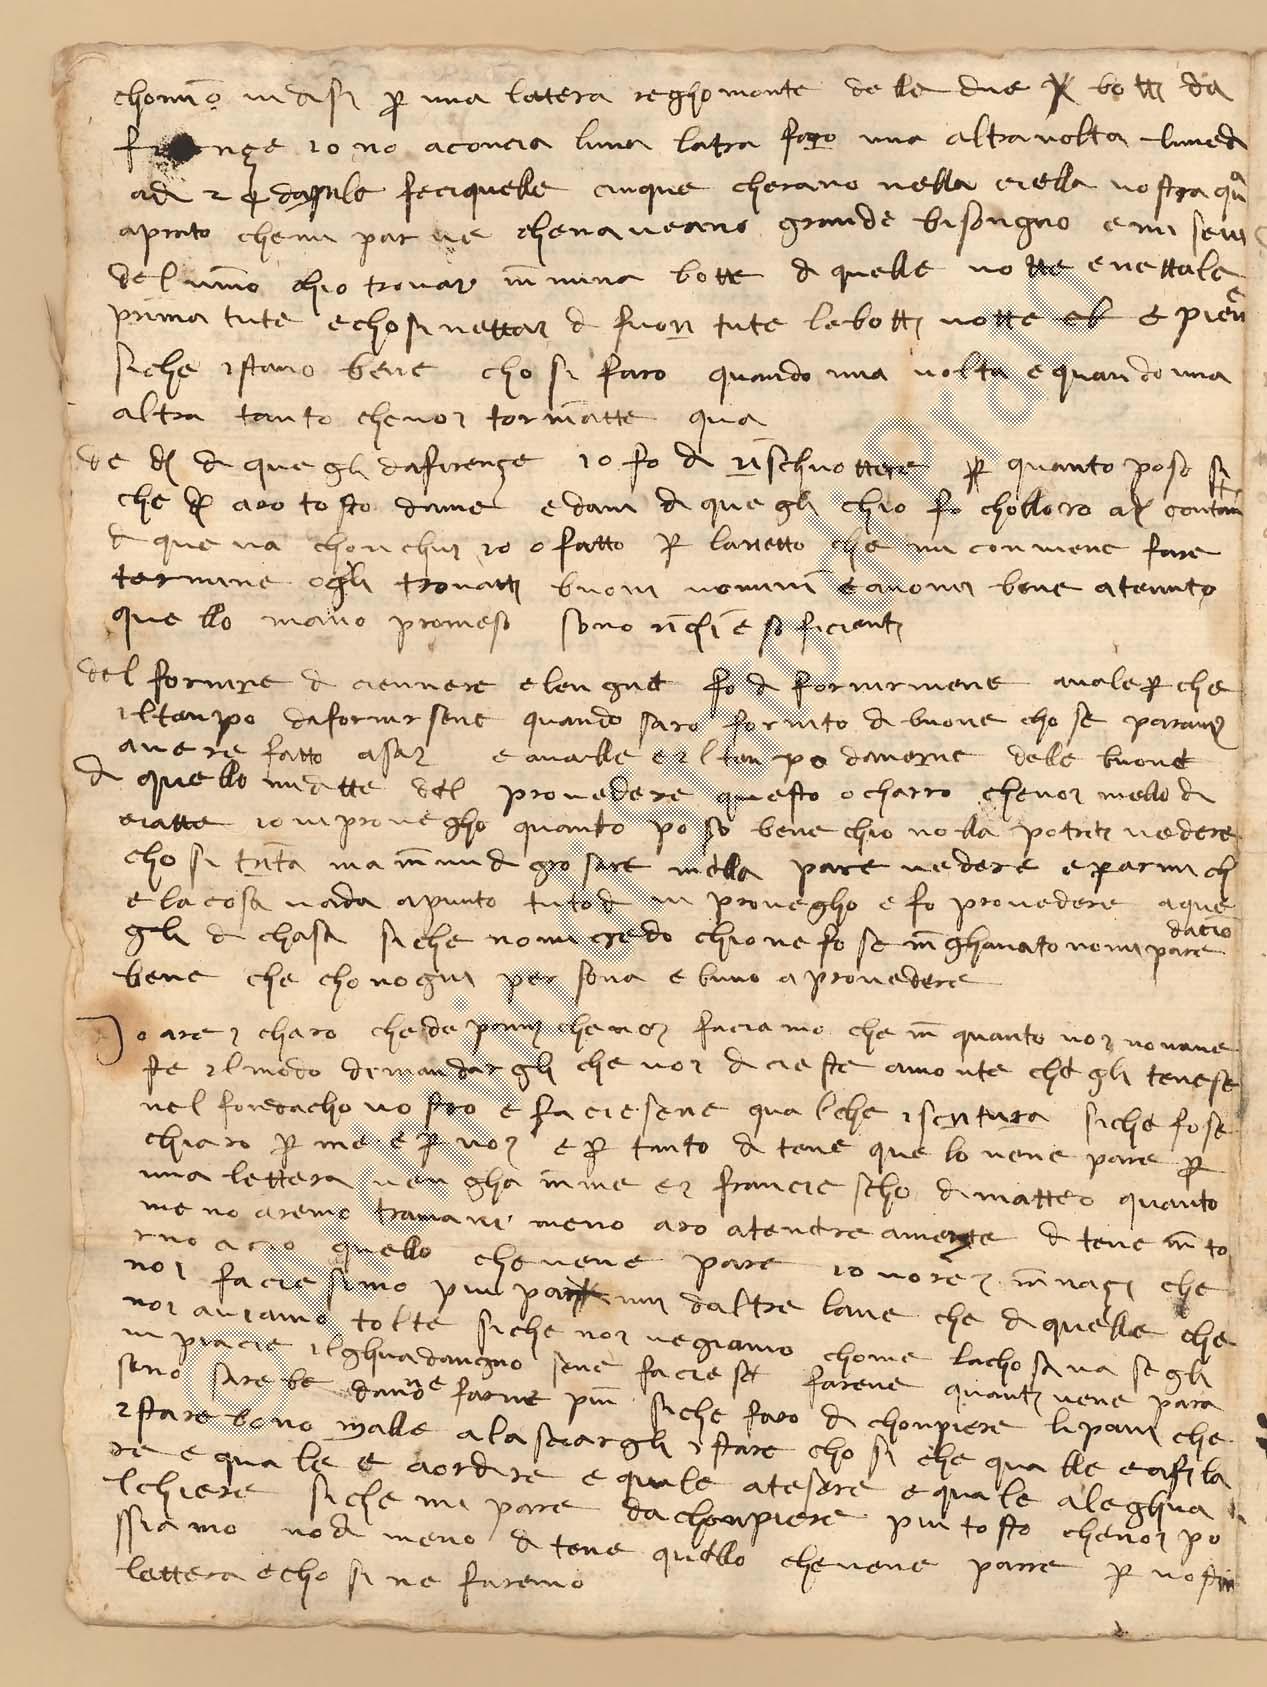 chomio vi disi p una letera reghomonte delle due botti da
firenze io no aconcia luna latra faro una altra volta lunedi
adi 24 daprile feci quelle cinque cherano nella ciella vostra qua
a prato che mi parve chen aveano grande bisongno e mi servi
del vino chio trovai in nuna botte di quelle votte e nettale
prima tute e chosi nettai di fuori tute le botti votte e piene
siche istano bene chosi faro quando una volta e quando una
altra tanto che voi torniatte qua
de d di quegli da firenze io fo di rischuottere p quanto poso si
che d aro tosto dame e dami di quegli chio fo cholloro a contanti
di que va chon chui io o fatto p laretto che mi conviene fare
termine ogli trovatti buoni uomini e anomi bene atenuto
quello mano promeso sono richi e soficienti
del fornire di ciennere e lengne fo di fornirmene avale p che
il tenpo da fornirsene quando saro fornito di buone chose parami
avere fatto asai e avalle e il tenpo daverne delle buone
di quello mi ditte del provedere questo o charo che voi mello di
ciatte io vi provegho quanto poso bene chio nolla potrei vedere
chosi trita ma in nudi grosare mella pare vedere e parmi ch
e la cosa vada apunto tuto di vi provegho e fo provedere a que
gli di chasa siche nomi credo chione fose inghanato nomi pare
dacio
bene che chonogni persona e buno a provedere
Io arei charo che de pani che noi faciamo che in quanto voi nonave
ste il modo di mandargli che voi dicieste a monte che gli tenese
nel fondacho vostro e faciesene qualche iscritura siche fose
chiaro p me e p voi e p tanto ditene quelo vene pare p
una lettera vengha in me e i franciescho di matteo quanto
meno aremo tramani meno aro atendre a niente ditene in to
rno acio quello che vene pare io vorei in nazi che
noi faciesimo piu pani daltre lane che di quelle che
noi aviamo tolte siche noi vegiamo chome la chosa va se gli
vi piacie il ghuadangno sene faciese farene quanti vene para
seno sarebe danone farne piu siche faro di chonpiere li pani che
istarebono malle a lasciargli istare chosi che qualle e a fila
re e quale e a ordire e quale a tesere e quale a le ghua
lchiere siche mi pare da chonpiere piu tosto che noi po
ssiamo nodi meno ditene quello che vene parre p vostra
lettera e chosi ne faremo